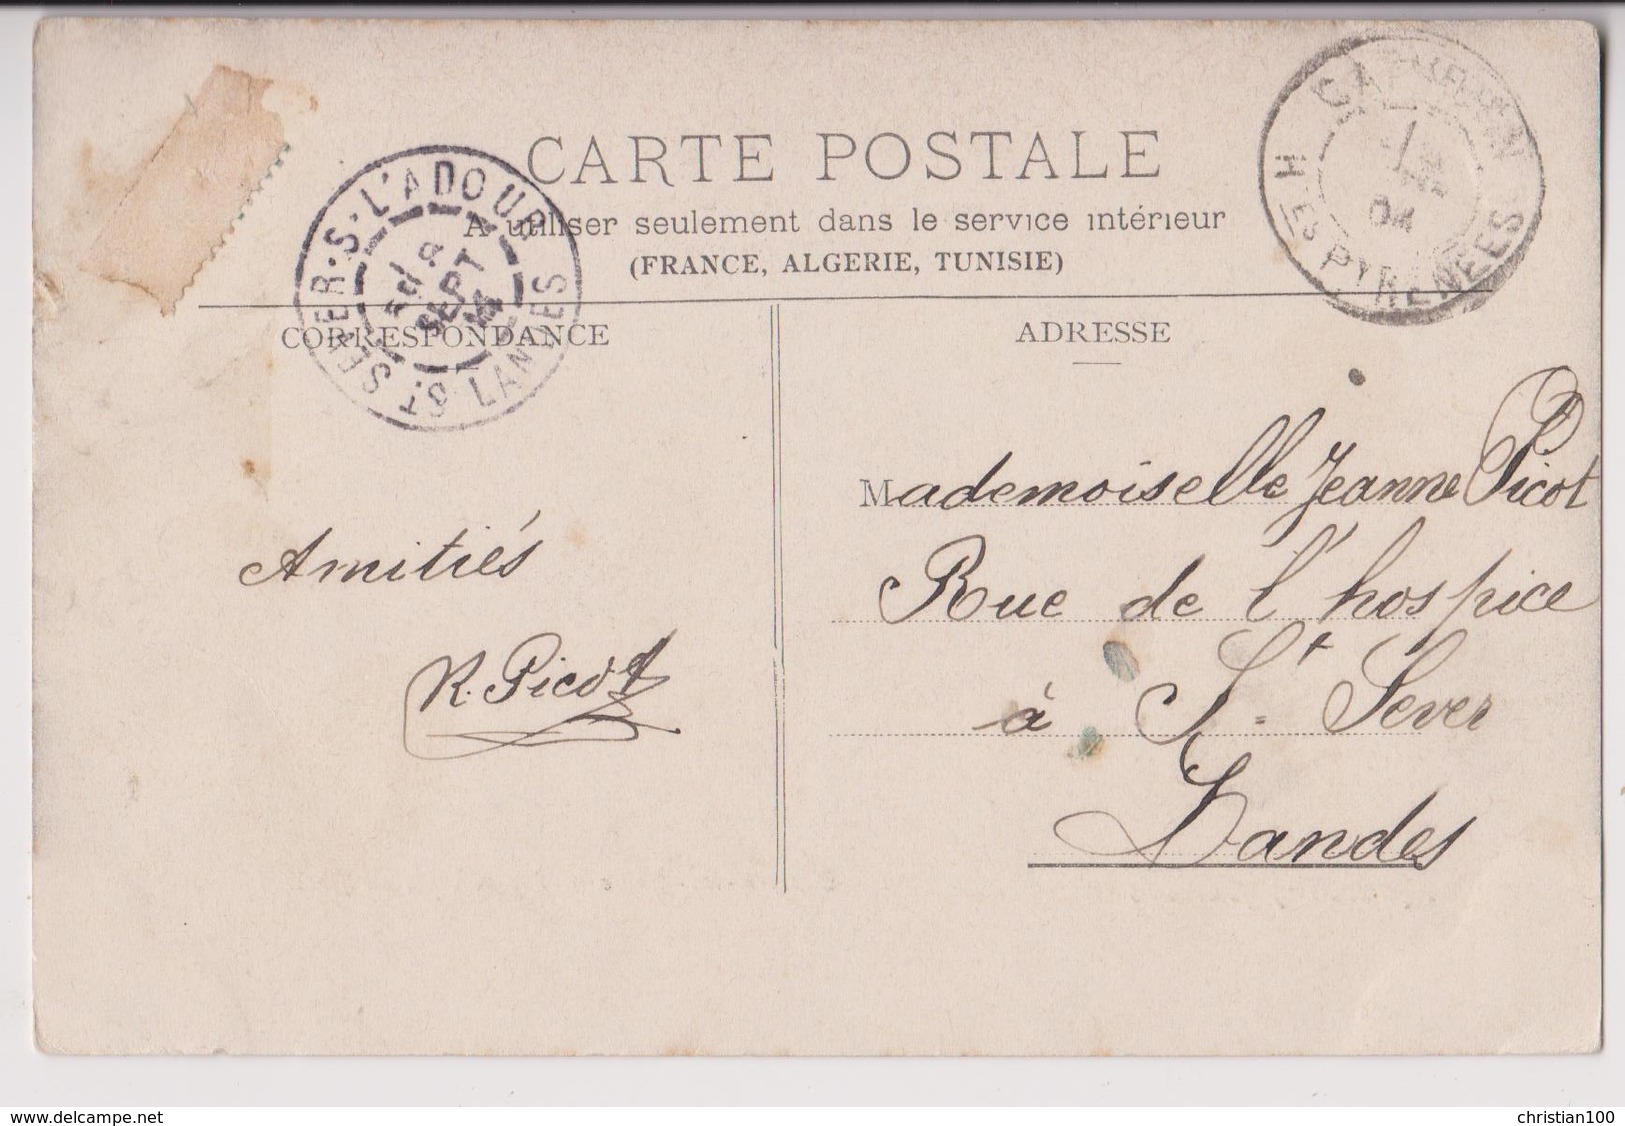 CARTE POSTALE
A utiliser seulement dans le service intérieur
(FRANCE, ALGERIE, TUNISIE)
CORRESPONDANCE
ADRESSE
ST SEVER-S-L'ADOUR
SEPT
LANDES
Htes PYRENEES
04
Amitiés
R. Picot
Mademoiselle Jeanne Picot
Rue de l'hospice
à St Sever
Landes
www.delcampe.net
christian100